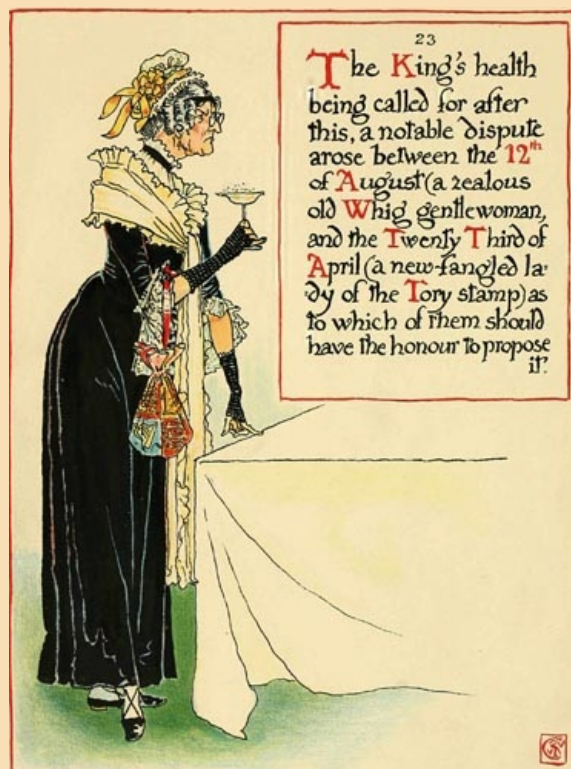 23
The King's health
being called for after
this, a notable dispute
arose between the 12th
of August (a zealous
old Whig gentlewoman,
and the Twenty Third of
April (a new-fangled la-
dy of the Tory stamp) as
to which of them should
have the honour to propose
it?